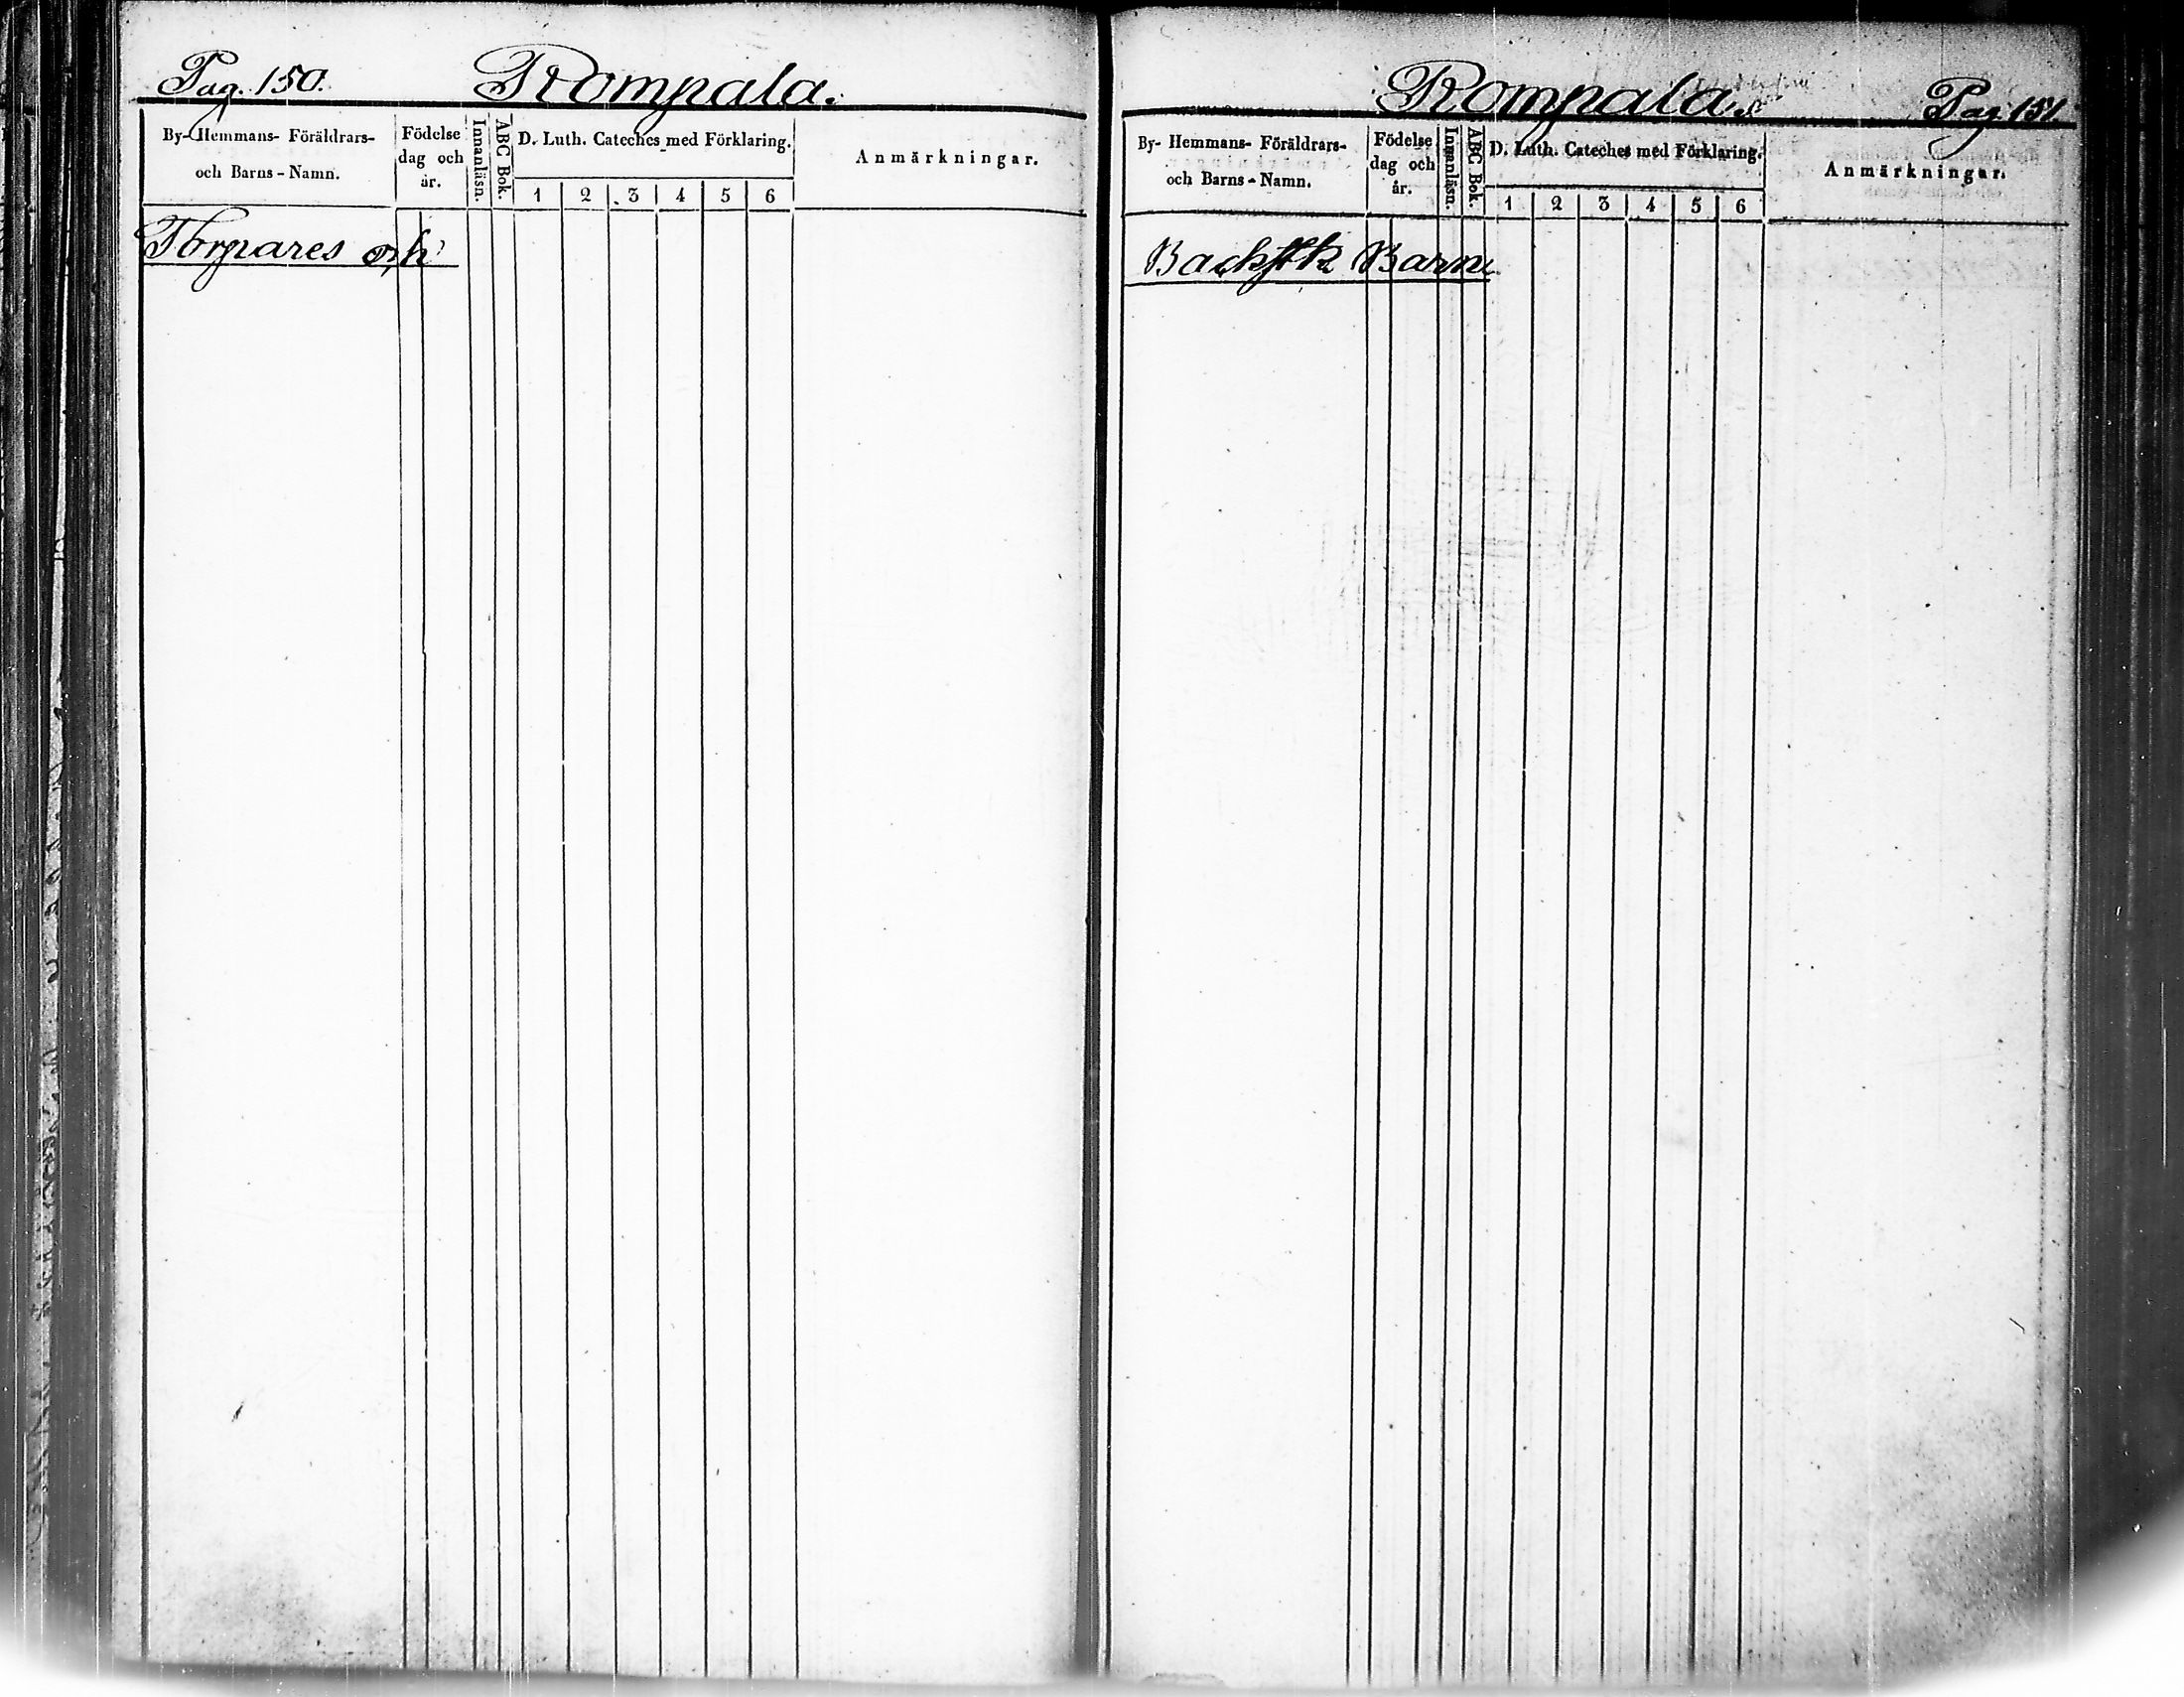 Pag. 150. Rompala.
By- Hemmans- Föräldrars- och Barns-Namn.
Födelse dag och år.
Innanläsn.
ABC Bok.
D. Luth. Cateches med Förklaring.
1 2 3 4 5 6
Anmärkningar.
Torpares och
Rompala. Pag. 151.
By- Hemmans- Föräldrars- och Barns-Namn.
Födelse dag och år.
Innanläsn.
ABC Bok.
D. Luth. Cateches med Förklaring.
1 2 3 4 5 6
Anmärkningar.
Barn